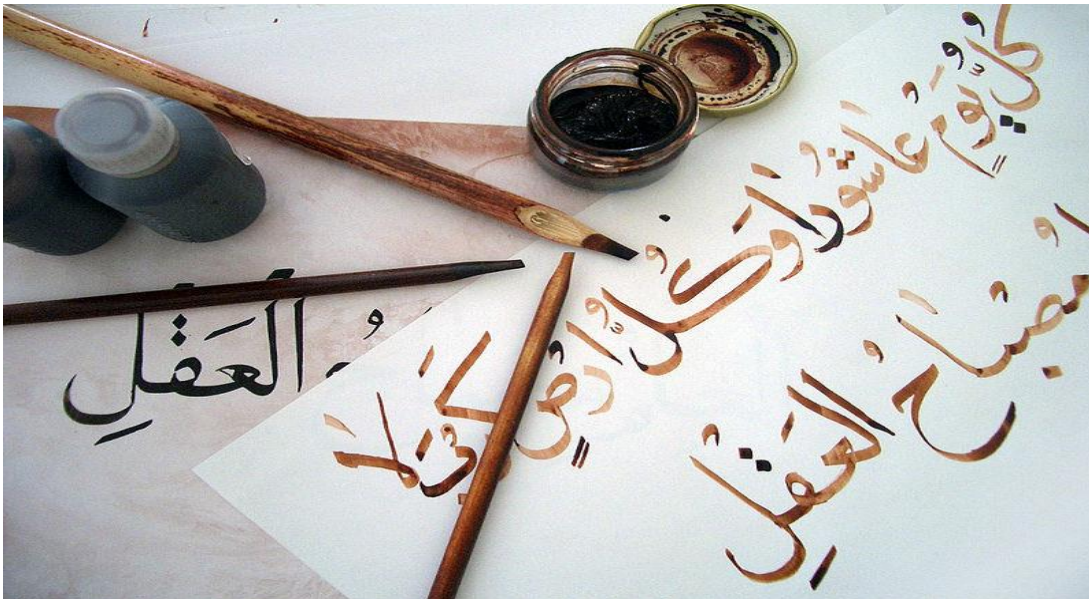 كُلُّ يَوْمٍ عَاشُورَا وَكُلُّ اَرْضٍ كَرْبَلَا
مِصْبَاحُ الْعَقْلِ
الْعَقْلِ